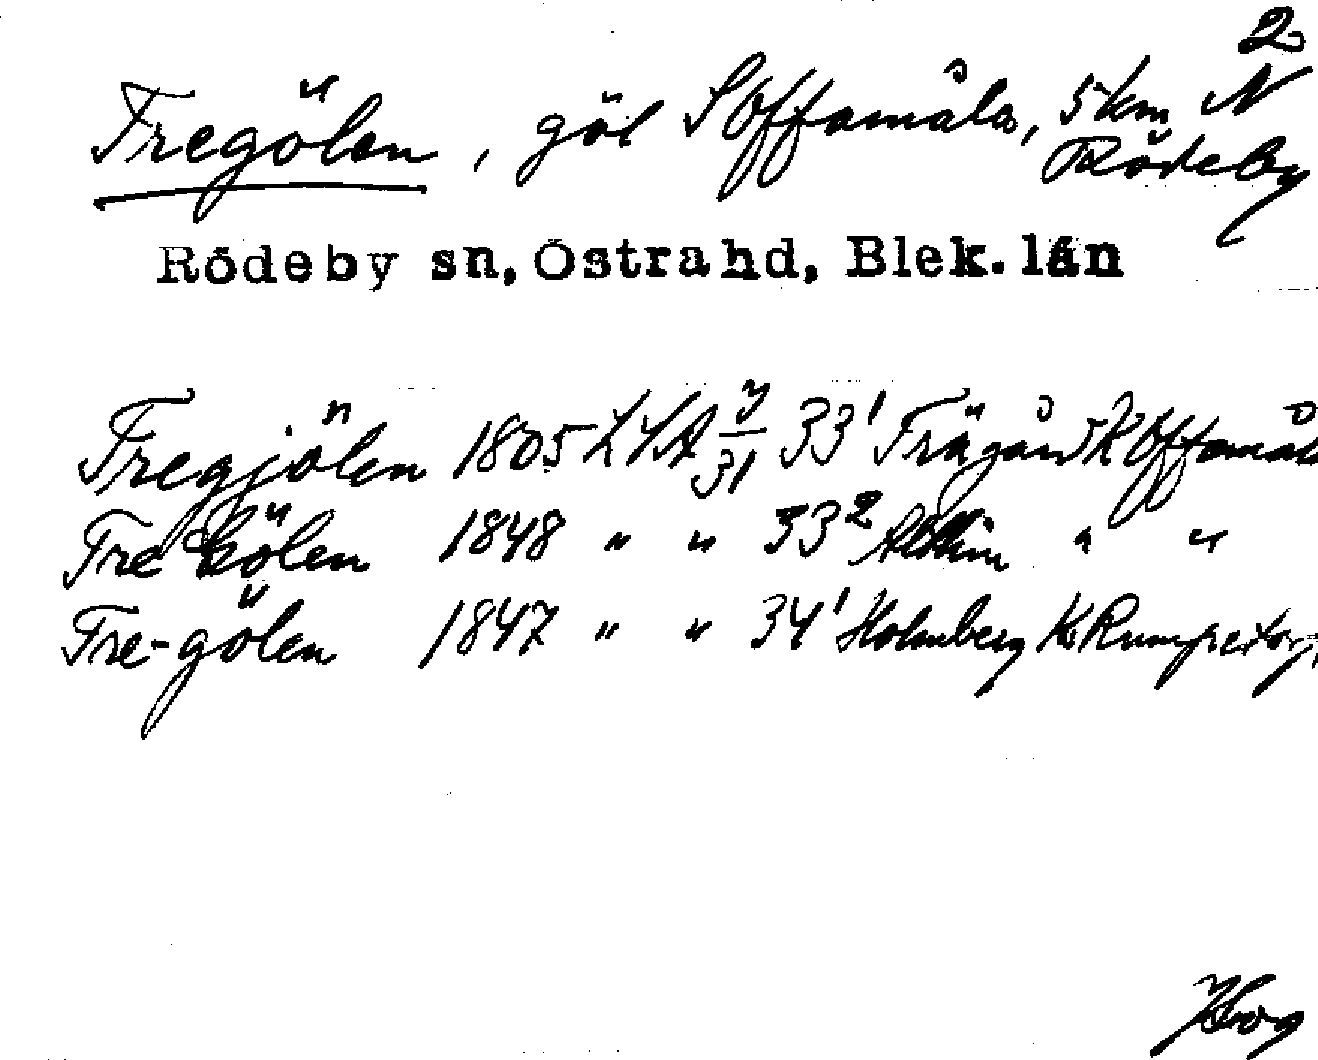 2
Tregölen, göl S Offamåla, 5 km N
Rödeby
Rödeby sn, Östra hd, Blek. län
Tregjölen 1805 LSA 33¹ Trägård K Offamåla
Tre Gölen 1848 " " 33² " "
Tre-gölen 1847 " " 34¹ Holmberg K Rumpetorp